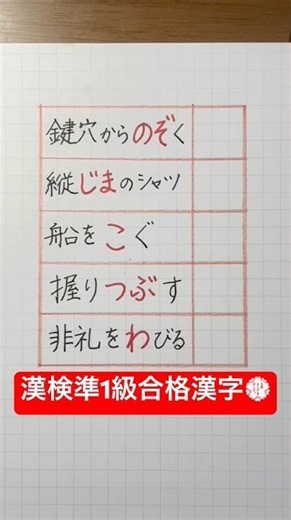 鍵穴からのぞく
縦じまのシャツ
船をこぐ
握りつぶす
非礼をわびる
漢検準1級合格漢字💮